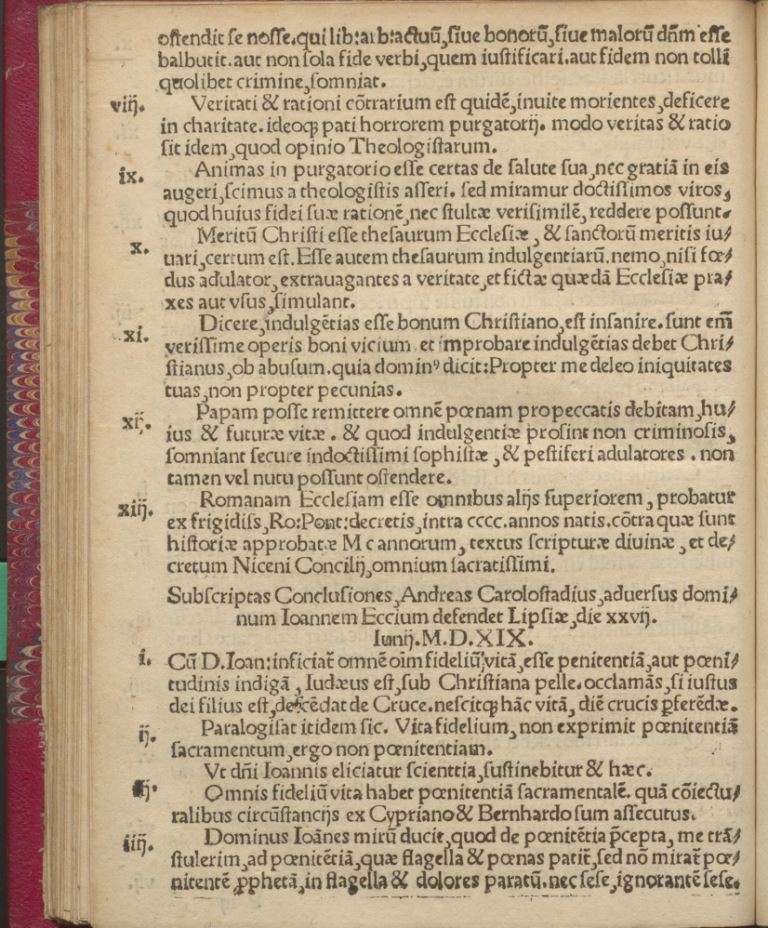 ostendit se nosse.qui lib:arb:actuū,siue bonorū,siue malorū dn̄m esse
balbutit.aut non sola fide verbi,quem iustificari.aut fidem non tolli
quolibet crimine,somniat.
viij. Veritati & rationi cōtrarium est quidē,inuite morientes,deficere
in charitate.ideoqꝫ pati horrorem purgatorij. modo veritas & ratio
sit idem,quod opinio Theologistarum.
ix. Animas in purgatorio esse certas de salute sua,nec gratiā in eis
augeri,scimus a theologistis asseri. sed miramur doctissimos viros,
quod huius fidei suæ rationē,nec stultæ verisimilē,reddere possunt.
x. Meritū Christi esse thesaurum Ecclesiæ, & sanctorū meritis iu/
uari,certum est.Esse autem thesaurum indulgentiarū.nemo,nisi fœ/
dus adulator,extrauagantes a veritate,et fictæ quædā Ecclesiæ pra/
xes aut vsus,simulant.
xi. Dicere,indulgētias esse bonum Christiano,est insanire.sunt em̄
verissime operis boni vicium et improbare indulgētias debet Chri/
stianus,ob abusum.quia dominꝰ dicit:Propter me deleo iniquitates
tuas,non propter pecunias.
xij. Papam posse remittere omnē pœnam pro peccatis debitam,hu/
ius & futuræ vitæ . & quod indulgentiæ prosint non criminosis,
somniant secure indoctissimi sophistæ, & pestiferi adulatores . non
tamen vel nutu possunt ostendere.
xiij. Romanam Ecclesiam esse omnibus alijs superiorem, probatur
ex frigidiss,Ro:Pont:decretis,intra cccc.annos natis.cōtra quæ sunt
historiæ approbatæ M c annorum, textus scripturæ diuinæ, et de/
cretum Niceni Concilij,omnium sacratissimi.
Subscriptas Conclusiones,Andreas Carolostadius,aduersus domi/
num Ioannem Eccium defendet Lipsiæ,die xxvij.
Iunij.M.D.XIX.
i. Cū D.Ioan:inficiat᷑ omnē oīm fideliū,vitā,esse penitentiā,aut pœni/
tudinis indigā, Iudæus est,sub Christiana pelle.occlamās,si iustus
dei filius est,descēdat de Cruce.nescitqꝫ hāc vitā, diē crucis ꝑferēdæ.
ij. Paralogisat itidem sic. Vita fidelium, non exprimit pœnitentiā
sacramentum,ergo non pœnitentiam.
Vt dn̄i Ioannis eliciatur scienttia,sustinebitur & hæc.
iij. Omnis fideliū vita habet pœnitentiā sacramentalē. quā cōiectu/
ralibus circūstancijs ex Cypriano & Bernhardo sum assecutus.
iiij. Dominus Ioānes mirū ducit,quod de pœnitētia p̄cepta, me trā/
stulerim,ad pœnitētiā,quæ flagella & pœnas patit᷑,sed nō mirat᷑ pœ/
nitentē ꝓphetā,in flagella & dolores paratū.nec sese,ignorantē sese.